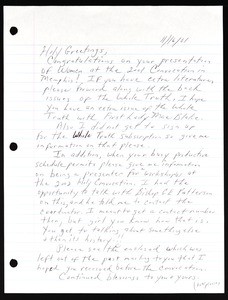 Holy Greetings,
Congratulations on your presentation
of Women at the 2nd Convention in
Memphis! If you have extra literature
please forward along with the back
issues of the Whole Truth. I hope
you have an extra issue of the Whole
Truth with First Lady Mae Blake.
Also I did not get to sign up
for the Whole Truth Subscription so give me
information on that please.
In addition, when your busy productive
schedule permits please give me information
on being a presenter for workshops at
the 2nd Holy Convention. I had the
opportunity to talk with Bishop Patterson
on this, and he told me to contact the
coordinator. I meant to get a contact number
then, but got you know how it is.
You get to talking about
then its history.
Please see the enclosed which was
left out of the past meeting so that I
hope you received before the Convention.
Continued blessings to you & yours,